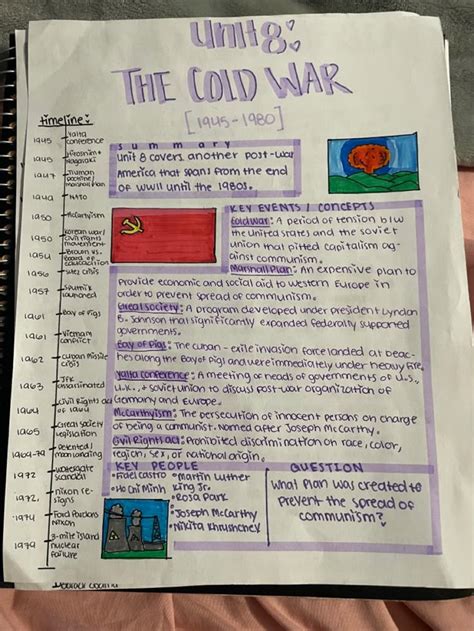 Unit 8:
THE COLD WAR
[1945-1980]
timeline:
1945 Yalta conference
1945 Hiroshima + Nagasaki
1947 Truman doctrine/ marshall plan
NATO
1950 McCarthyism
1950 Korean war/ civil rights movement
1954 Brown vs. Board of education
1956 Suez crisis
1957 Sputnik launched
1961 Bay of Pigs
1961 Vietnam conflict
1962 Cuban missile crisis
1963 JFK assassinated
1964 Civil Rights Act of 1964
1965 Great society legislation
1969-79 Detente/ moon landing
1972 Watergate scandal
1972, Nixon resigns
1974 Ford pardons Nixon
1979 3-mile island nuclear failure
summary
Unit 8 covers another post-war
America that spans from the end
of WWII until the 1980s.
KEY EVENTS / CONCEPTS
Cold War: A period of tension b/w
the United States and the soviet
union that pitted capitalism ag-
ainst communism.
Marshall Plan: An expensive plan to
provide economic and social aid to western Europe in
order to prevent spread of communism.
Great society: A program developed under president Lyndon
B. Johnson that significantly expanded federally supported
governments.
Bay of Pigs: The cuban-exile invasion force landed at beac-
hes along the Bay of pigs and were immediately under heavy fire.
Yalta conference: A meeting of heads of governments of U.S.,
U.K., + soviet union to discuss post-war organization of
Germany and Europe.
McCarthyism: The persecution of innocent persons on charge
of being a communist. Named after Joseph McCarthy.
Civil Rights act: Prohibited discrimination on race, color,
region, sex, or national origin.
KEY PEOPLE
•Fidel Castro
•Ho Chi Minh
•Martin Luther
King Jr.
•Rosa Park
•Joseph McCarthy
•Nikita Khrushchev
QUESTION
What plan was created to
prevent the spread of
communism?